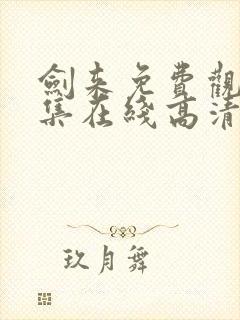 劍来免費觀
集在綫高清
玖月舞